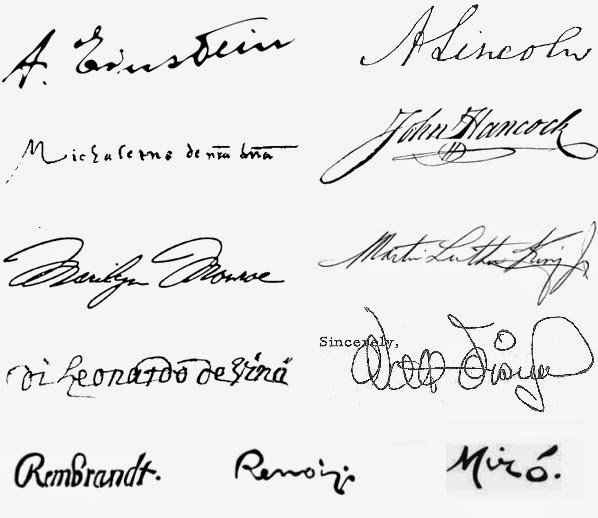 A. Einstein
A Lincoln
Michelagno
John Hancock
Marilyn Monroe
Martin Luther King Jr
di Leonardo de Vinci
Sincerely,
Walt Disney
Rembrandt.
Renoir.
Miró.